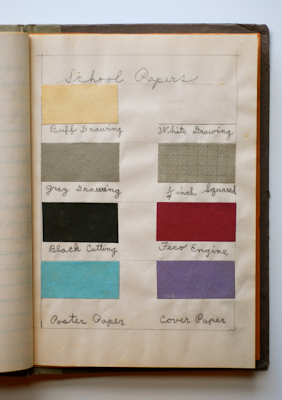 School Papers
Buff Drawing
White Drawing
Gray Drawing
¼ inch Squared
Black Cutting
Teco Engine
Poster Paper
Cover Paper